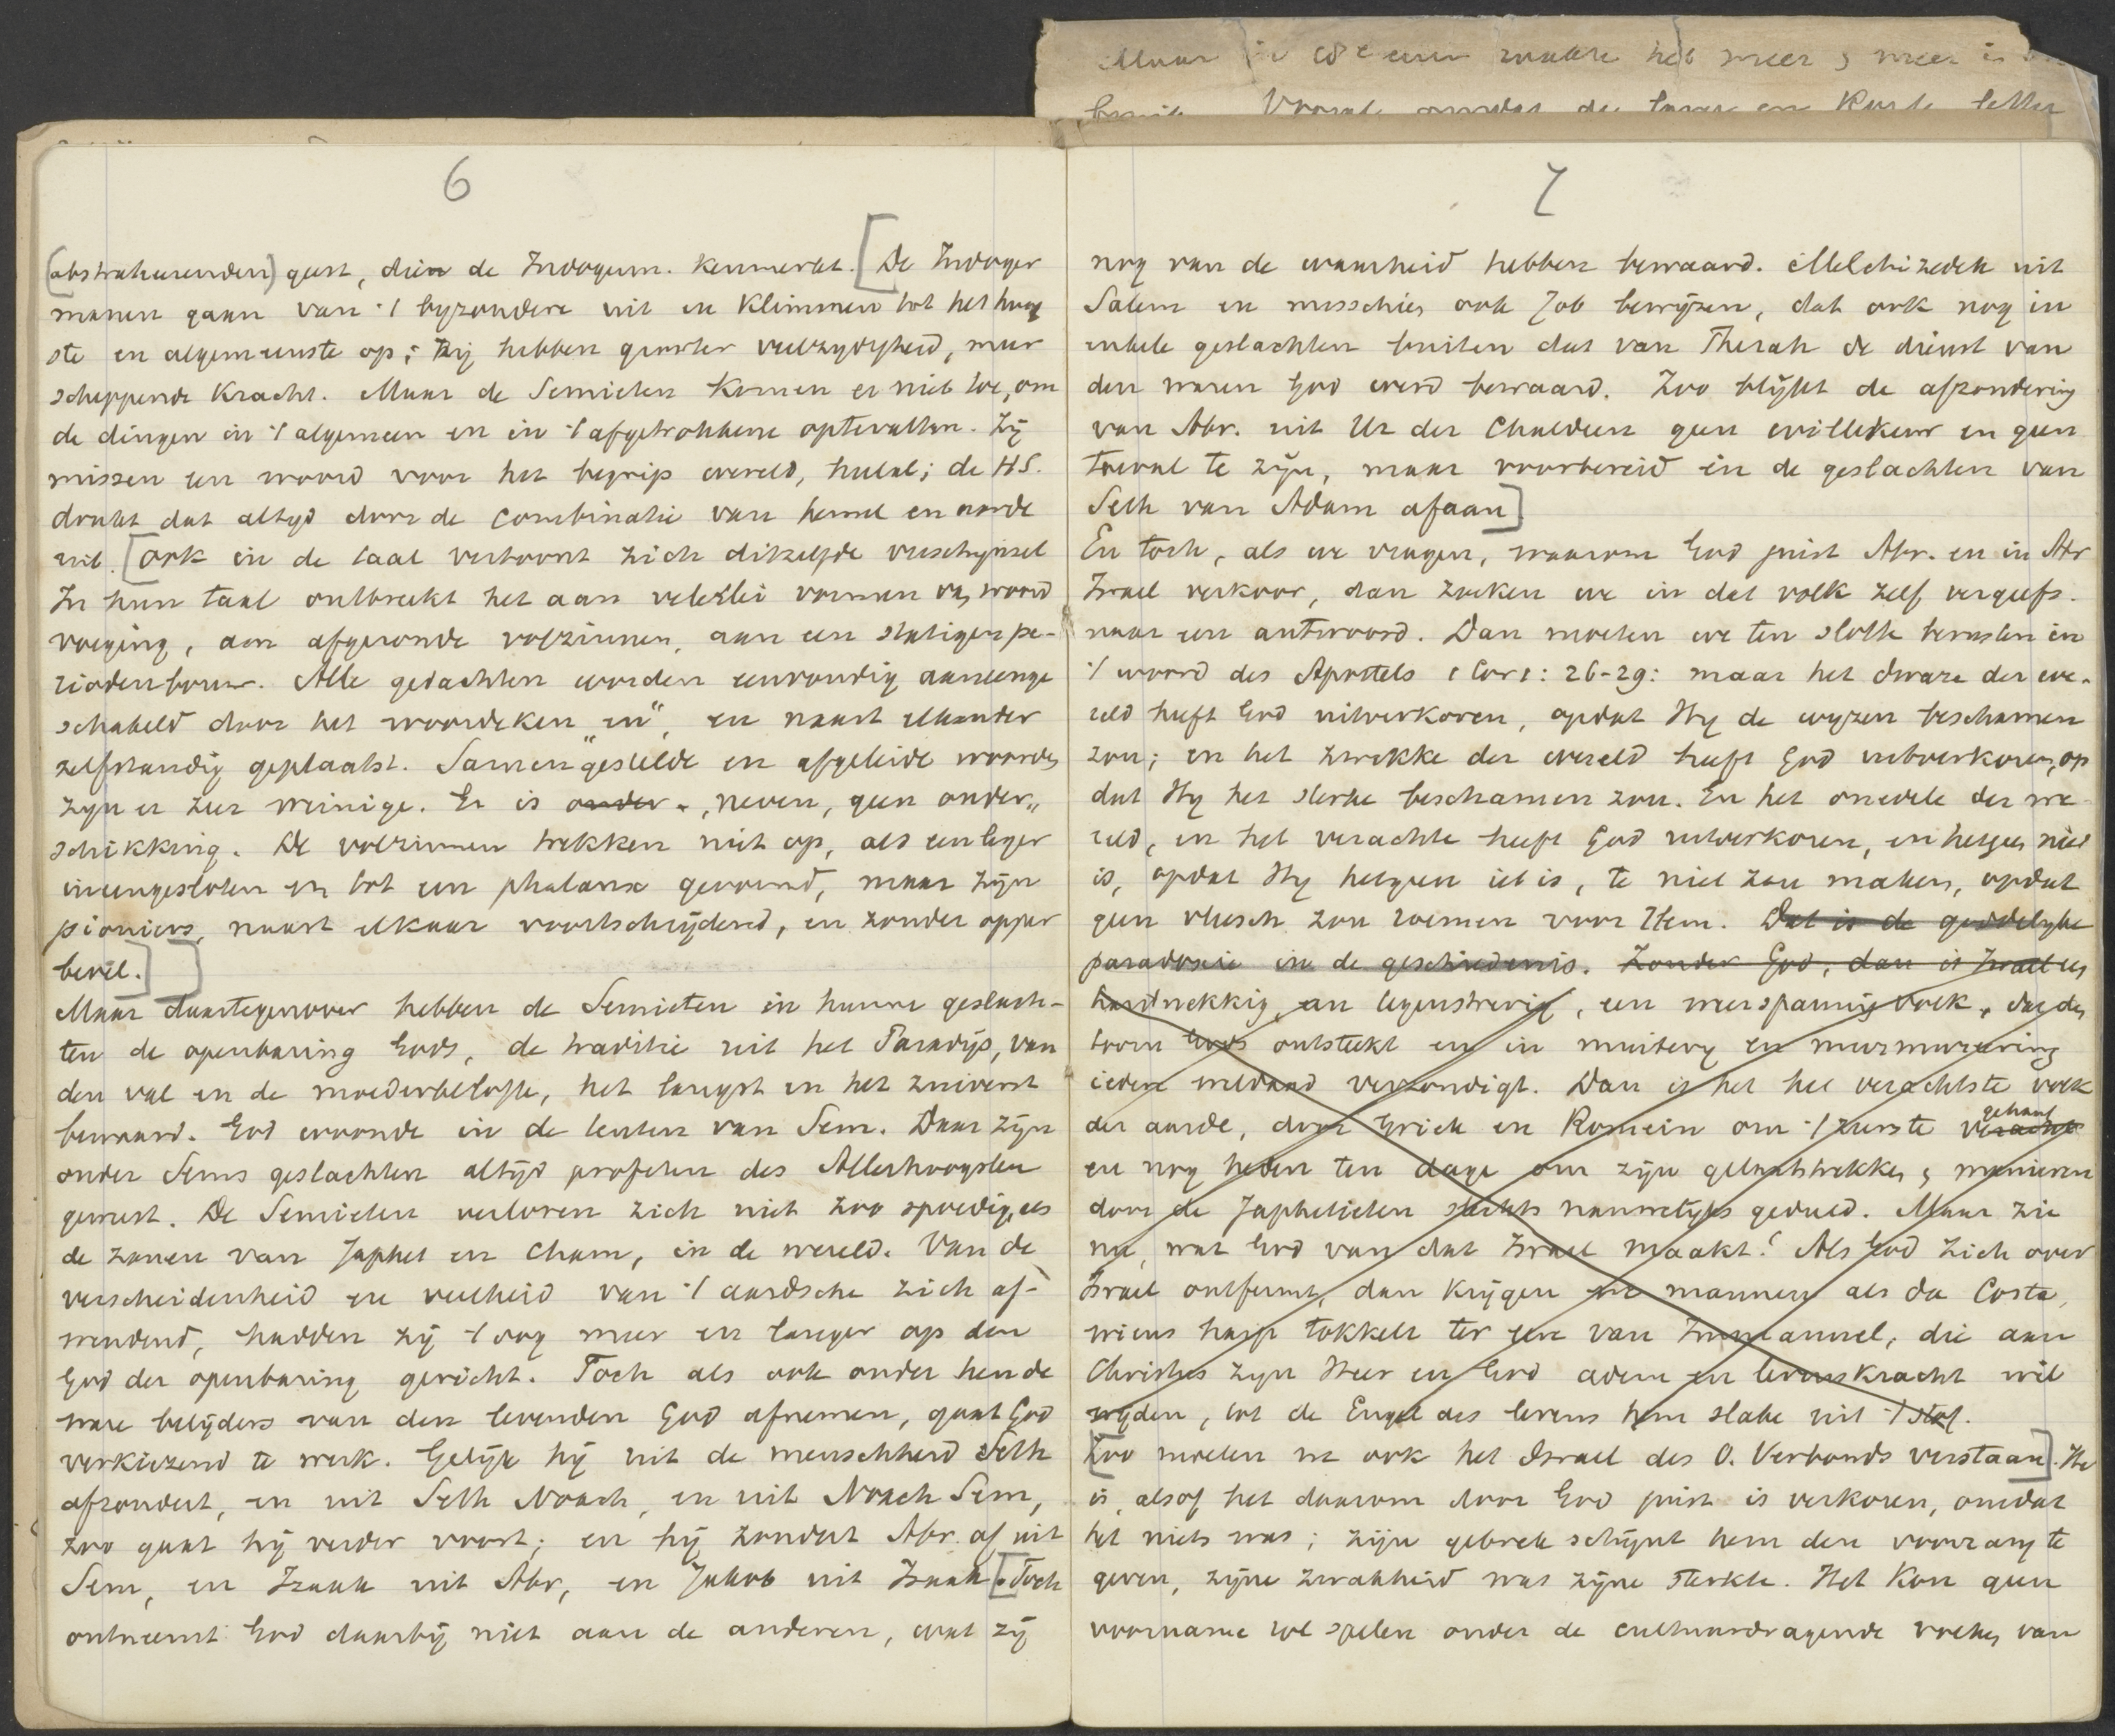 Maar in 18e eeuw raakte het meer & meer in
bruik. Vooral omdat de taaie en Korte letter
6
(abstraheerenden) geest, dien de Indogerm. kenmerkt. [De Indoger
manen gaan van 't byzondere uit en klimmen tot het hoog
ste en algemeenste op; Zij hebben grooter veelzydigheid, meer
scheppende Kracht. Maar de Semieten komen er niet toe, om
de dingen in 't algemeen en in 't afgetrokkene optevatten. Zij
missen een woord voor het begrip wereld, heelal; de H.S.
drukt dat altyd door de combinatie van hemel en aarde
uit. [Ook in de taal vertoont zich ditzelfde verschynsel
In hun taal ontbreekt het aan velerlei vormen van woord
voeging, aan afgeronde volzinnen, aan een statigen pe-
riodenbouw. Alle gedachten worden eenvoudig aaneenge
schakeld door het woordeken "en", en naast elkander
zelfstandig geplaatst. Samengestelde en afgeleide woorden
zyn er zeer weinige. Er is onder-, neven, geen onder,,
schikking. De volzinnen trekken niet op, als een leger
ineengesloten en tot een phalanx gevormd, maar zijn
pioniers, naast elkaar voortschrijdend, en zonder opper
bevel.]]
Maar daartegenover hebben de Semieten in hunne geslach-
ten de openbaring Gods, de traditie uit het Paradijs, van
den val en de moederbelofte, het langst en het zuiverst
bewaard. God woonde in de tenten van Sem. Daar zijn
onder Sems geslachten altijd profeten des Allerhoogsten
geweest. De Semieten verloren zich niet zoo spoedig, als
de zonen van Japhet en Cham, in de wereld. Van de
verscheidenheid en veelheid van 't aardsche zich af-
wendend, hadden zij 't oog meer en langer op den
God der openbaring gericht. Toch als ook onder hen de
ware belijders van den levenden God afnemen, gaat God
verkiezend te werk. Gelijk hij uit de menschheid Seth
afzondert, en uit Seth Noach, en uit Noach Sem,
zoo gaat hij verder voort; en hij zondert Abr. af uit
Sem, en Izaak uit Abr, en Jakob uit Izaak. [Toch
ontneemt God daarbij niet aan de anderen, wat zij
7
nog van de waarheid hebben bewaard. Melchizedek uit
Salem en misschien ook Job bewijzen, dat ook nog in
enkele geslachten buiten dat van Therah de dienst van
den waren God werd bewaard. Zoo blijkt de afzondering
van Abr. uit Ur der Chaldeen geen willekeur en geen
toeval te zijn, maar voorbereid in de geslachten van
Seth van Adam afaan]
En toch, als we vragen, waarom God juist Abr. en in Abr
Israel verkoor, dan zoeken we in dat volk zelf vergeefs.
naar een antwoord. Dan moeten we ten slotte berusten in
't woord des Apostels 1 Cor 1: 26-29: maar het dwaze der we-
reld heeft God uitverkoren, opdat Hy de wyzen beschamen
zou; en het zwakke der wereld heeft God uitverkoren, op
dat Hy het sterke beschamen zou. En het onedele der we-
reld, en het verachte heeft God uitverkoren, en hetgeen niet
is, opdat Hy hetgeen iet is, te niet zou maken, opdat
geen vleesch zou roemen voor Hem. Dat is de goddelyke
paradoxie in de geschiedenis. Zonder God, dan is Israel een
hardnekkig, en tegenstrevig, een weerspannig volk, dat den
toorn Gods ontsteekt en in muitery en murmureering
iedere weldaad verzondigt. Dan is het het verachtste volk
der aarde, door Griek en Romein om 't zeerste veracht gehaat
en nog heden ten dage om zijn gelaatstrekken & manieren
door de Japhetieten slechts nauwelyks geduld. Maar zie
nu, wat God van dat Israel maakt! Als God zich over
Israel ontfermt, dan krijgen we mannen als da Costa,
wiens harp tokkelt ter eere van Immanuel, die aan
Christus zyn Heer en God adem en levenskracht wil
wijden, tot de Engel des levens hem slake uit 't stof.
[Zoo moeten we ook het Israel des O. Verbonds verstaan]. He
is, alsof het daarom door God juist is verkoren, omdat
het niets was; zijn gebrek schijnt hem den voorrang te
geven, zijne zwakheid was zijne sterkte. Het kon geen
voorname rol spelen onder de cultuurdragende volken van